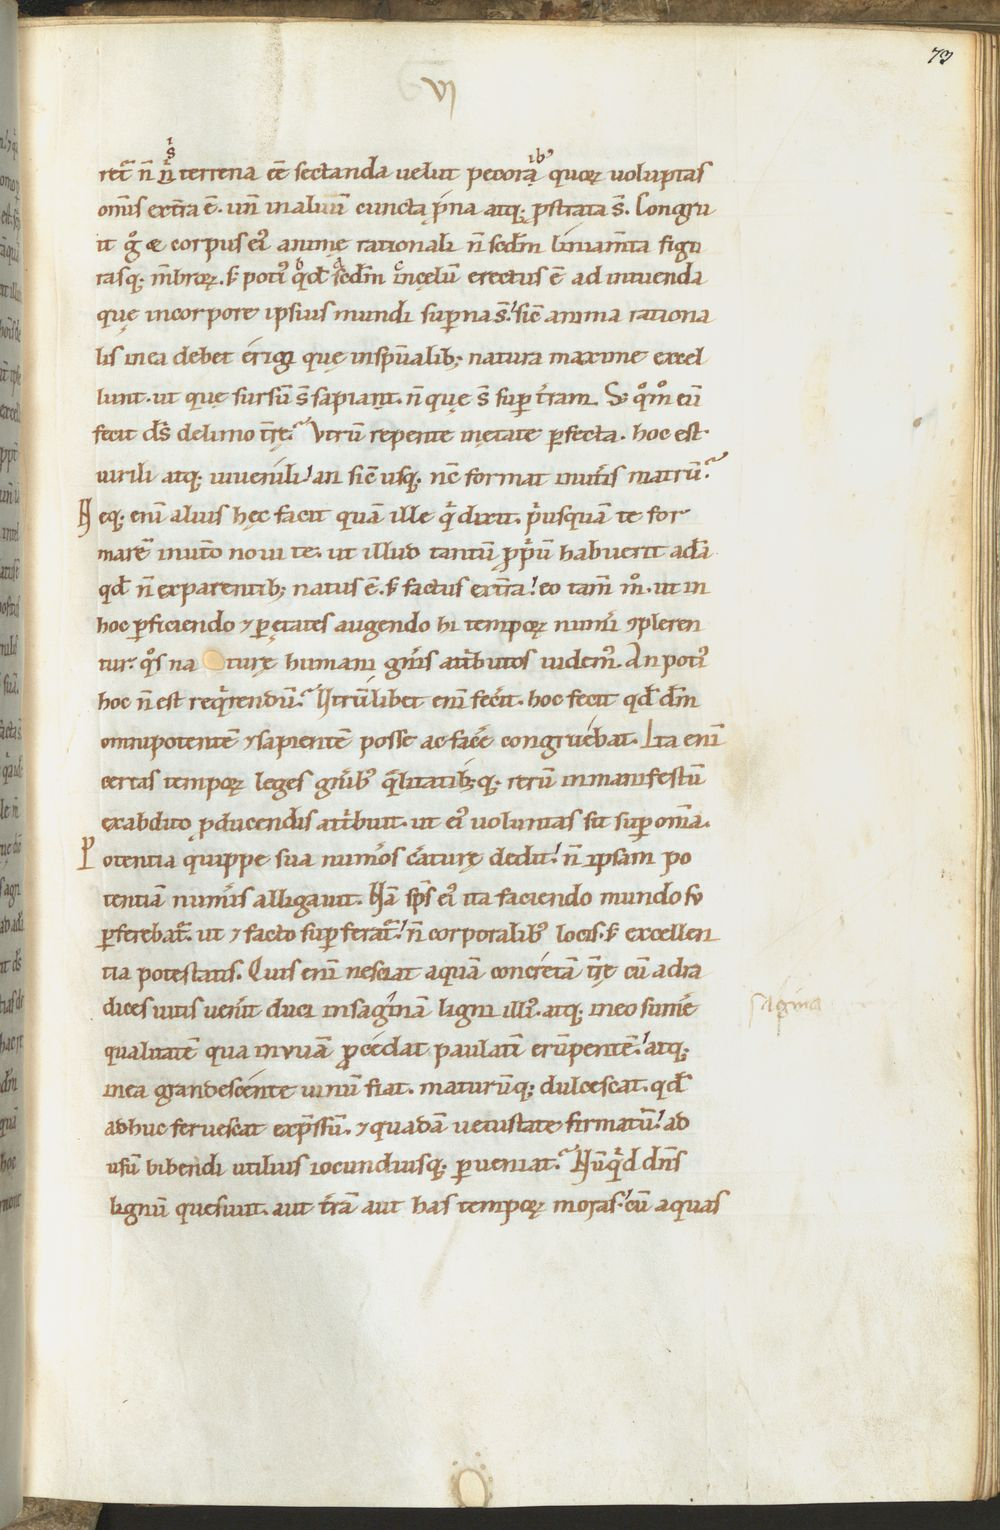 73
VI
ret̄ n̄ n̄ terrena eē sectanda uelut pecora quoꝝ uoluptas
is
ibꝰ
omīs ex tr̄a ē. un̄ in aluū cuncta p̄na atq; ꝓstrata s̄. Congru
it g̊ & corpus eiꝰ animę rationali n̄ scđm liniam̄ta figu
rasq; m̄broꝝ. sꝫ potiꝰ qđ scđm in cęlū erectus ē ad intuenda
quę in corpore ipsius mundi superna s̄. sic̄ anima rationa
lis in ea debet erigi quę in spūalibꝫ natura maxime excel
lunt. ut quę sursū s̄ sapiant. n̄ quę s̄ super tr̄am. Sꝫ qm̊ eū
fecit ds̄ de limo tr̄ę. Vtrū repente in ętate perfecta. hoc est
uirili atq; iuuenili. an sic̄ usq; nc̄ format in utīs matrū.
Neq; eni aliuſ hęc facit quā ille qi dixit. priusquā te for
marē in utō noui te. ut illud tantū ꝓpiū habuerit adā
qđ n̄ ex parentibꝫ natus ē. sꝫ factus ex tr̄a. eo tam̄ m̊. ut in
hoc perficiendo ⁊ per ętates augendo hi tempoꝝ num̄i ꝯpleren
tur. qͦs na turę humani gn̄is atibutos uidemꝰ. An potiꝰ
hoc n̄ est requirendū. Utrūlibet eni fecit. hoc fecit qđ dm̄
omnipotentē ⁊ sapientē posse ac facē congruebat. Ita eni
certas tempoꝝ leges gn̄ibꝰ qͣlitatibꝫq; rerū in manifestū
ex abdito ꝓducendis atibuit. ut eiꝰ uoluntas sit super om̄ia.
Potentia quippe sua num̄os cāturę dedit. n̄ ipsam po
tentiā num̄is alligauit. Nā sp̄s eiꝰ ita faciendo mundo su
perferebat̄. ut ⁊ facto superferat̄. n̄ corporalibꝰ locis. sꝫ excellen
tia potestatis. Quis eni nesciat aquā concretā tr̄ę cū ad ra
dices uitis uenīt duci in saginā ligni illiꝰ. atq; in eo sumē
sagina
qualitatē qua in uuā ꝓcedat paulati erūpentē. atq;
in ea grandescente uinū fiat. maturūq; dulcescat. qđ
adhuc feruescat exp̄ssū. ⁊ quadā uetustate firmatū. ad
usū bibendi utilius iocundiusq; perueniat. Nūqid dn̄s
lignū quesiuit. aut tr̄ā aut has tempoꝝ moras. cū aquas